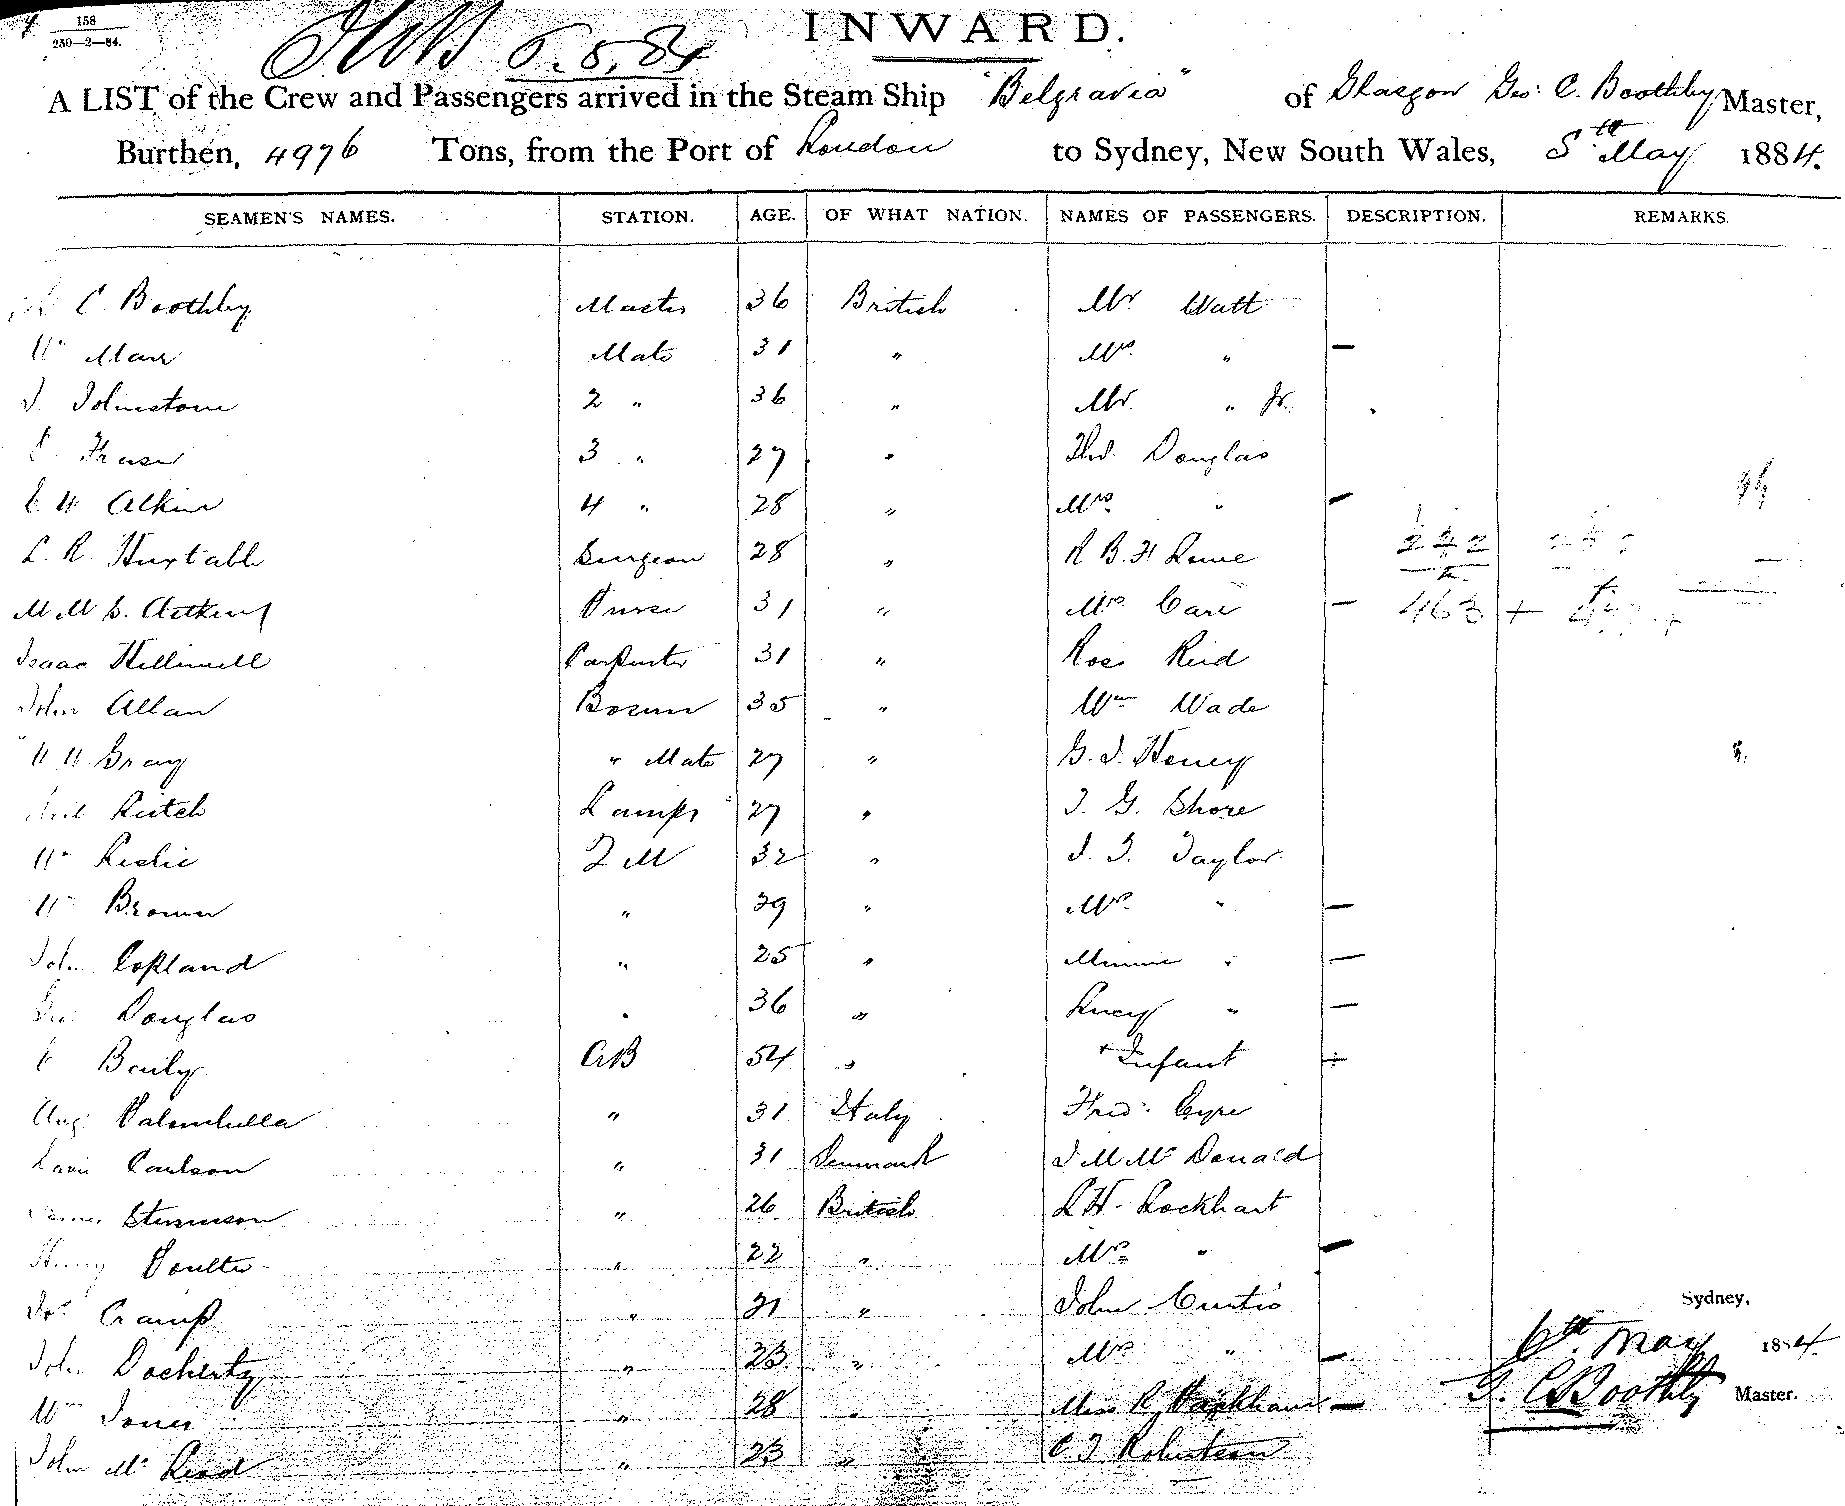 158
250—2—84.
INWARD.
A LIST of the Crew and Passengers arrived in the Steam Ship "Belgravia" of Glasgow Geo: C. Boothby Master,
Burthen, 4976 Tons, from the Port of London to Sydney, New South Wales, 5th May 1884.
SEAMEN'S NAMES. STATION. AGE. OF WHAT NATION. NAMES OF PASSENGERS. DESCRIPTION. REMARKS.
C Boothby Master 36 British Mr Watt
Wm Marr Mate 31 " Mrs " —
J. Johnstone 2 " 36 " Mr. " Jr.
Fraser 3 " 27 " Thos. Douglas
W Atkin 4 " 28 " Mrs " —
L. R. Huxtable Surgeon 28 " R B. H Lowe 222
M M S. Aitken Purser 31 " Mrs Carr — 463 +
Isaac Helliwell Carpenter 31 " Ross Reid
John Allan Bosun 35 " Wm Wade
Gray " Mate 27 " G. J. Heney
Leitch Lamps 27 " T. G. Shore
Wm Leslie 2 M 32 " J. J. Taylor
Wm Brown " 39 " Mrs " —
John Copland " 25 " Minnie " —
Geo Douglas " 36 " Lucy " —
Baily AB 54 " + Infant ÷
Aug. Palombella " 31 Italy Fred. Eyre
Carlson " 31 Denmark J M Mc Donald
James Stevenson " 26 British L H. Lockhart
Henry Poulter " 22 " Mrs " —
Jos. Cramp " 21 " John Curtis
Sydney,
John Docherty " 23 " Mrs " — 6th May 1884
Wm Jones " 28 " Miss R Markham — G. C Boothby Master.
John Mc Lead " 23 " C J Robertson